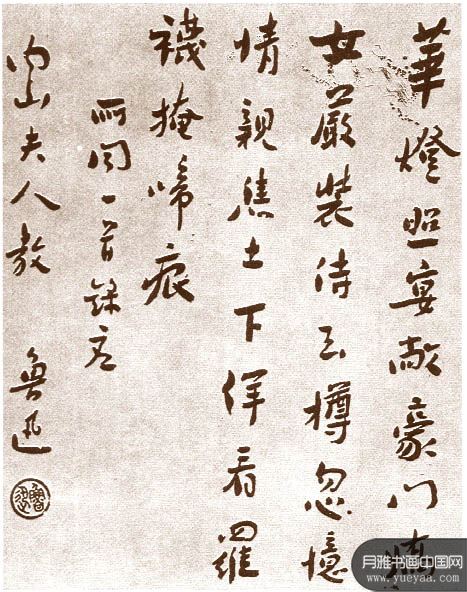 華燈照宴敞豪門嬌
女嚴裝侍玉樽忽憶
情親焦土下佯看羅
襪掩啼痕
所聞一首錄應
内山夫人教 魯迅
魯迅
月雅书画中国网
www.yueyaa.com